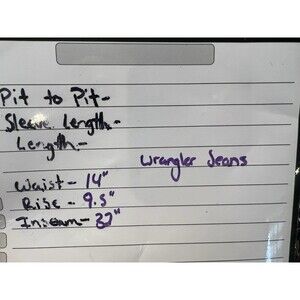 Pit to Pit-
Sleeve Length-
Length-
Wrangler Jeans
Waist- 14"
Rise - 9.5"
Inseam-